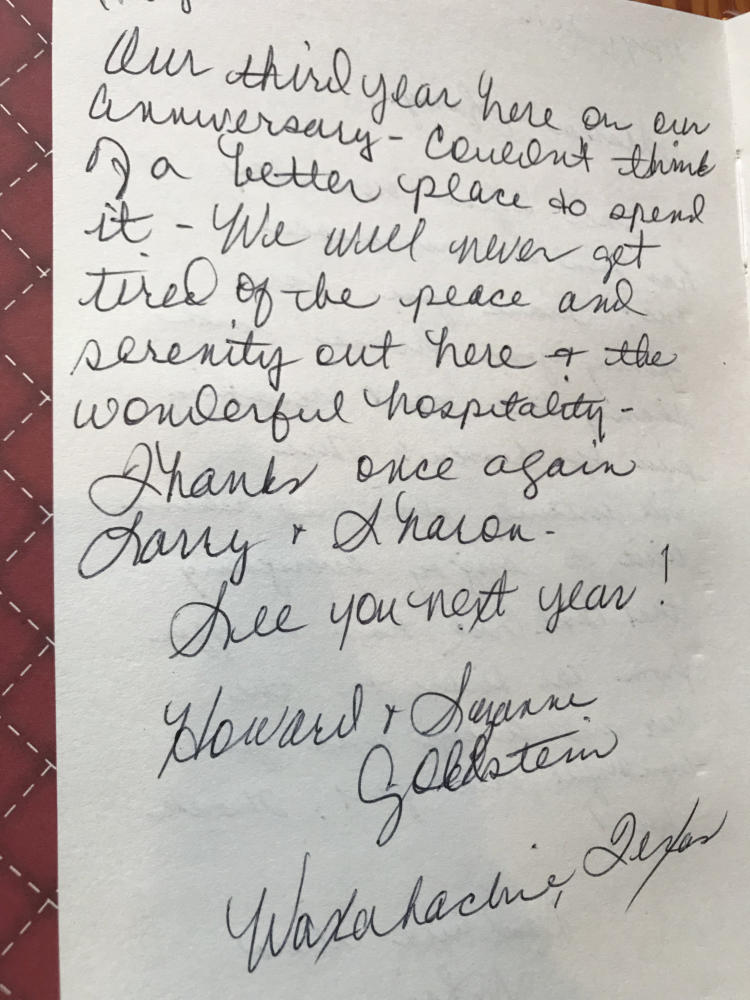 Our third year here on our
anniversary - Couldn't think
of a better place to spend
it - We will never get
tired of the peace and
serenity out here + the
wonderful hospitality -
Thanks once again
Larry + Sharon -
See you next year!
Howard + Suzanne
Goldstein
Waxahachie, Texas